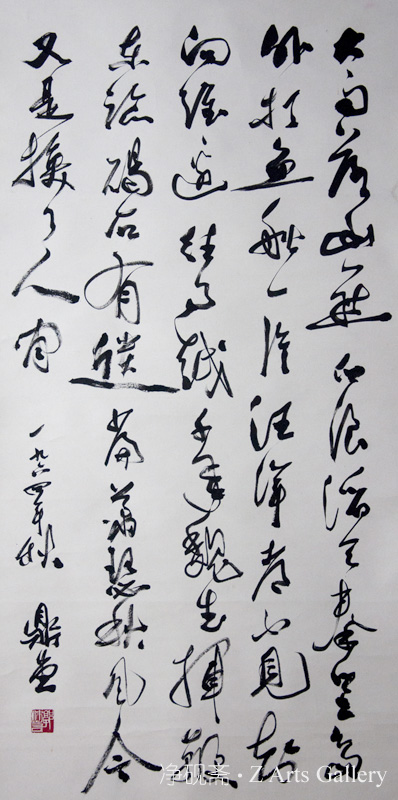 大雨落幽燕白浪滔天秦皇島
外打魚船一片汪洋都不見知
向誰邊往事越千年魏武揮鞭
東臨碣石有遺篇蕭瑟秋風今
又是換了人間
一九六四年秋 鼎堂
净砚斋 · Z Arts Gallery